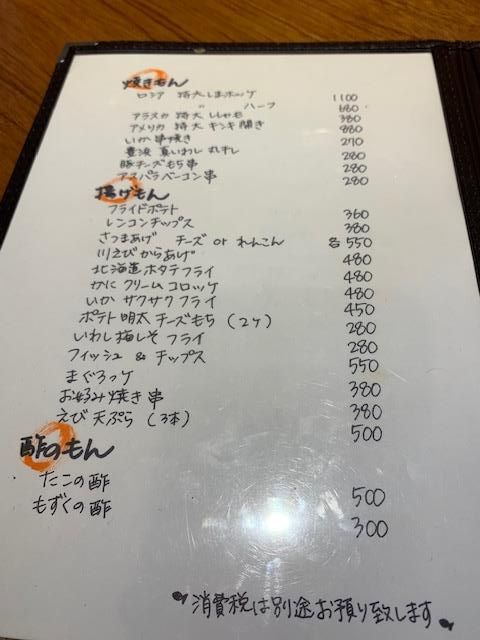 焼きもん
ロシア 特大しまホッケ 1100
〃 ハーフ 680
アラスカ 特大 ししゃも 380
アメリカ 特大 キンキ開き 880
いか串焼き 270
豊浜 真いわし 丸干し 280
豚チーズもち串 280
アスパラベーコン串 280
揚げもん
フライドポテト 360
レンコンチップス 380
さつまあげ チーズ or れんこん 各550
川えびからあげ 480
北海道ホタテフライ 480
かにクリームコロッケ 480
いか サクサクフライ 450
ポテト明太チーズもち (2ヶ) 280
いわし梅しそフライ 280
フィッシュ & チップス 550
まぐろっケ 380
お好み焼き串 380
えび天ぷら (3本) 500
酢のもん
たこの酢 500
もずくの酢 300
消費税は別途お預り致します